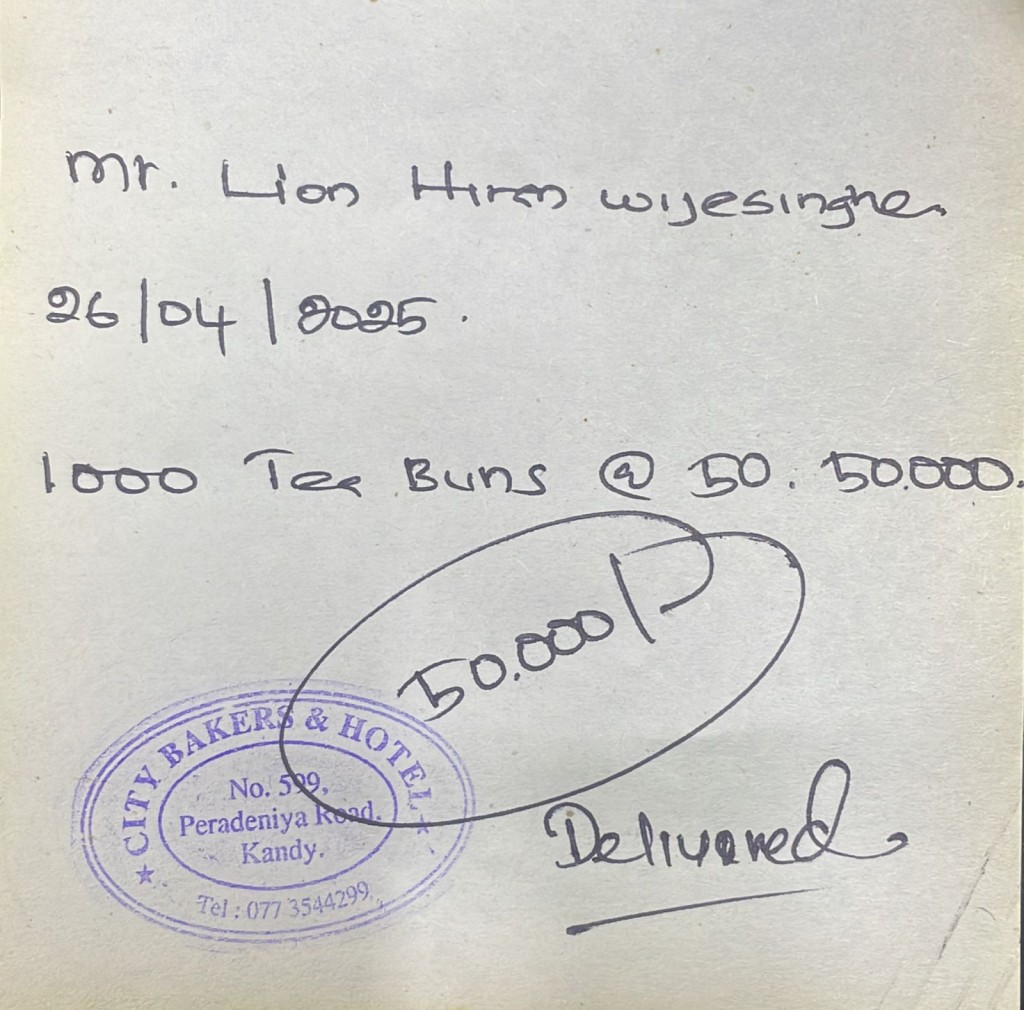 Mr. Lion Hiran wijesinghe.
26/04/2025.
1000 Tea Buns @ 50. 50.000.
50.000/
CITY BAKERS & HOTEL
No. 599,
Peradeniya Road,
Kandy.
Tel : 077 3544299
Delivered